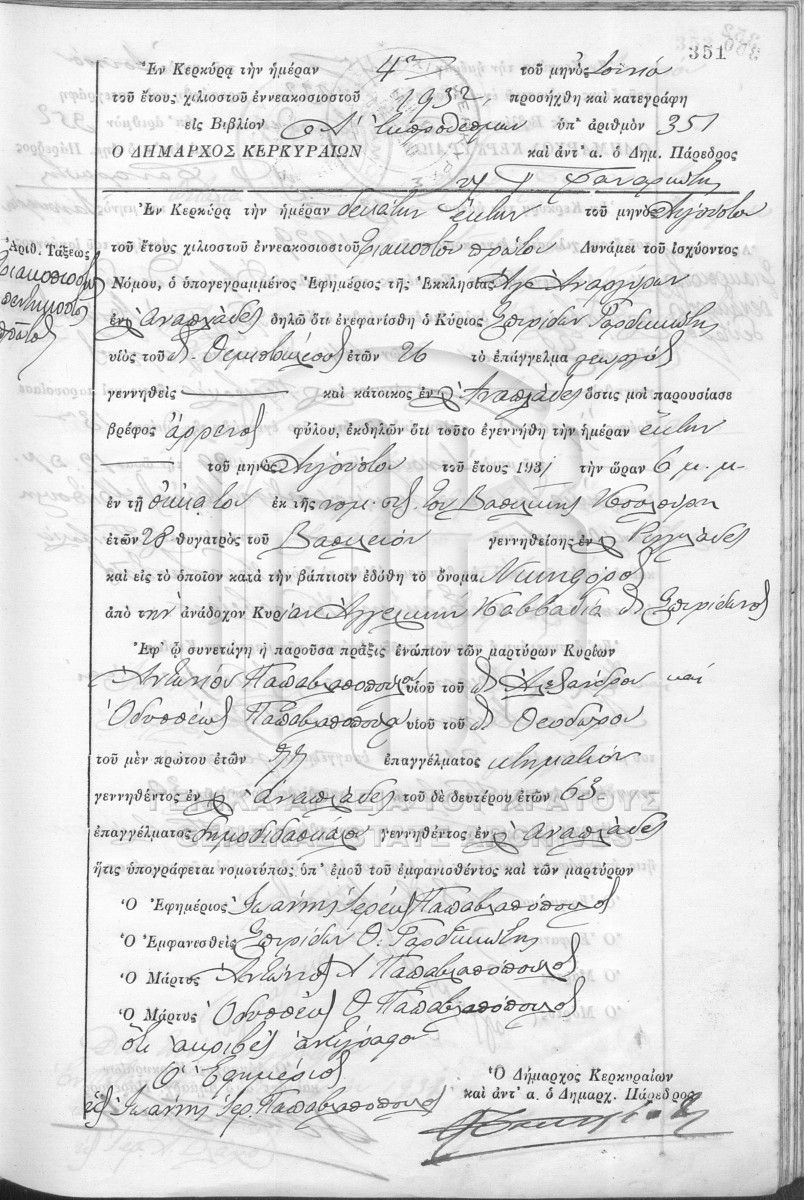 351
Ἐν Κερκύρᾳ τὴν ἡμέραν 4ην τοῦ μηνὸς
τοῦ ἔτους χιλιοστοῦ ἐννεακοσιοστοῦ 1932, προσήχθη καὶ κατεγράφη
εἰς Βιβλίον Α' Ἐκπροθέσμων ὑπ' ἀριθμὸν 351
Ο ΔΗΜΑΡΧΟΣ ΚΕΡΚΥΡΑΙΩΝ καὶ ἀντ' α. ὁ Δημ. Πάρεδρος
Ἐν Κερκύρᾳ τὴν ἡμέραν δεκάτην ἕκτην τοῦ μηνὸς Αὐγούστου
Ἀριθ. Τάξεως
τριακοσιοστὸς
πεντηκοστὸς
πρῶτος
τοῦ ἔτους χιλιοστοῦ ἐννεακοσιοστοῦ τριακοστοῦ πρώτου Δυνάμει τοῦ ἰσχύοντος
Νόμου, ὁ ὑπογεγραμμένος Ἐφημέριος τῆς Ἐκκλησίας Ἁγ. Ἀναργύρων
ἐν Ἀναπλάδες δηλῶ ὅτι ἐνεφανίσθη ὁ Κύριος Σπυρίδων Γαρδικιώτης
υἱὸς τοῦ Θεμιστοκλέους ἐτῶν 26 τὸ ἐπάγγελμα γεωργὸς
γεννηθεὶς καὶ κάτοικος ἐν Ἀναπλάδες ὅστις μοὶ παρουσίασε
βρέφος ἄρρενος φύλου, ἐκδηλῶν ὅτι τοῦτο ἐγεννήθη τὴν ἡμέραν ἕκτην
τοῦ μηνὸς Αὐγούστου τοῦ ἔτους 1931 τὴν ὥραν 6 μ.μ.
ἐν τῇ οἰκίᾳ του ἐκ τῆς νομ. συζ. του Βασιλικῆς
ἐτῶν 28 θυγατρὸς τοῦ Βασιλείου γεννηθείσης ἐν Ριγγλάδες
καὶ εἰς τὸ ὁποῖον κατὰ τὴν βάπτισιν ἐδόθη τὸ ὄνομα Νικηφόρος
ἀπὸ την ἀνάδοχον Κυρίαν Ἀγγελικὴν Καββαδία Σπυρίδωνος
Ἐφ' ᾧ συνετάγη ἡ παροῦσα πρᾶξις ἐνώπιον τῶν μαρτύρων Κυρίων
Ἀντωνίου Παπαβλασοπούλου υἱοῦ τοῦ Ἀλεξάνδρου καὶ
Ὀδυσσέως Παπαβλασοπούλου υἱοῦ τοῦ Θεοδώρου
τοῦ μὲν πρώτου ἐτῶν 77 ἐπαγγέλματος κτηματίου
γεννηθέντος ἐν Ἀναπλάδες τοῦ δὲ δευτέρου ἐτῶν 63
ΓΕΝΙΚΑ ΑΡΧΕΙΑ ΤΟΥ ΚΡΑΤΟΥΣ
ἐπαγγέλματος δημοδιδασκάλου γεννηθέντος ἐν Ἀναπλάδες
GENERAL STATE ARCHIVES
ἥτις ὑπογράφεται νομοτύπως ὑπ' ἐμοῦ τοῦ ἐμφανισθέντος καὶ τῶν μαρτύρων
Ὁ Ἐφημέριος Ἰωάννης Ἱερεὺς Παπαβλασόπουλος
Ὁ Ἐμφανισθεὶς Σπυρίδων Θ. Γαρδικιώτης
Ὁ Μάρτυς Ἀντώνιος Α Παπαβλασόπουλος
Ὁ Μάρτυς Ὀδυσσεὺς Θ. Παπαβλασόπουλος
ὅτι ἀκριβὲς ἀντίγραφον
Ὁ Ἐφημέριος
Ἰωάννης Ἱερ. Παπαβλασόπουλος
Ὁ Δήμαρχος Κερκυραίων
καὶ ἀντ' α. ὁ Δημαρχ. Πάρεδρος